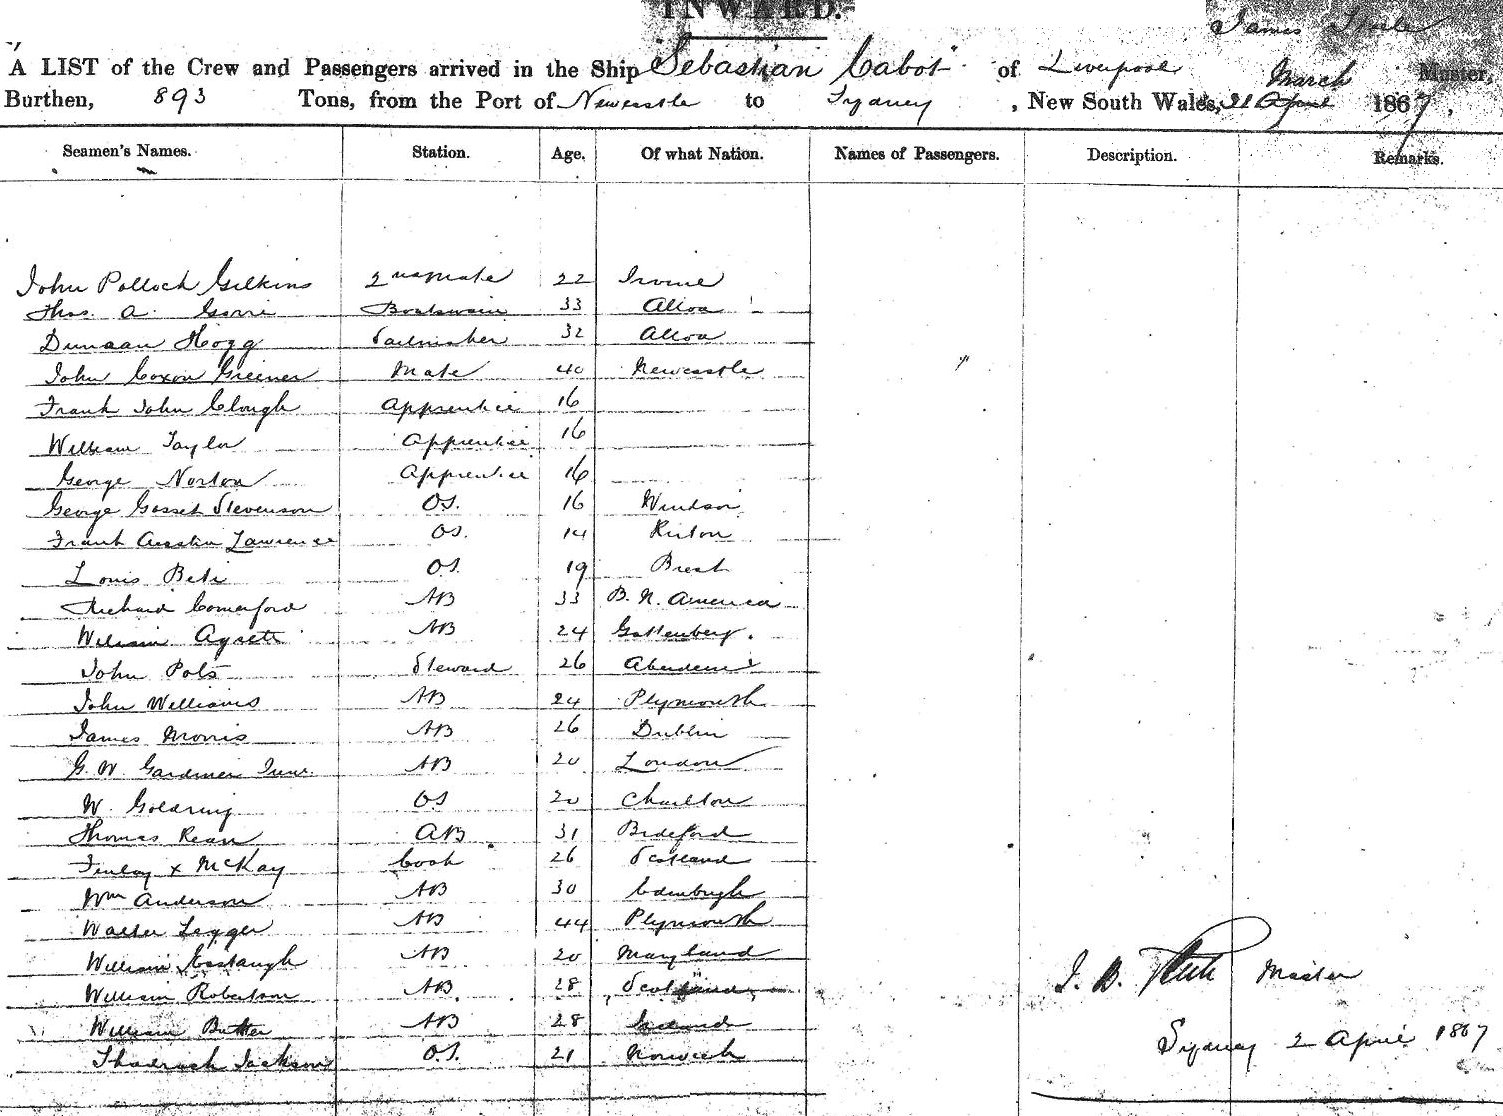 INWARD.
James
A LIST of the Crew and Passengers arrived in the Ship "Sebastian Cabot" of Liverpool Master,
Burthen, 893 Tons, from the Port of Newcastle to Sydney, New South Wales, 31 April March 1867.
Seamen's Names. Station. Age. Of what Nation. Names of Passengers. Description. Remarks.
John Pollock Gilkins 2nd Mate 22 Irvine
Thos. A. Gorrie Boatswain 33 Alloa
Duncan Hogg Sailmaker 32 Alloa
John Coxon Greener Mate 40 Newcastle
Frank John Clough Apprentice 16
William Taylor Apprentice 16
George Norton Apprentice 16
George Gosset Stevenson OS. 16 Windsor
Frank Austin Lawrence OS. 14
Louis OS. 19 Brest
Richard Comerford AB 33 B. N. America
William AB 24 Gottenberg.
John Pots Steward 26 Aberdeen
John Williams AB 24 Plymouth
James Morris AB 26 Dublin
G. W. Gardiner Junr. AB 20 London
W. Goldring OS 20 Charlton
Thomas Rean AB 31 Bideford
Finlay x McKay Cook 26 Scotland
Wm Anderson AB 30 Edinburgh
Walter AB 44 Plymouth
William Eastaugh AB 20 Maryland
William Robertson AB 28 Scotland
William Butter AB 28
Shadrach Jackson OS. 21 Norwich
J. B. Master
Sydney 2 April 1867